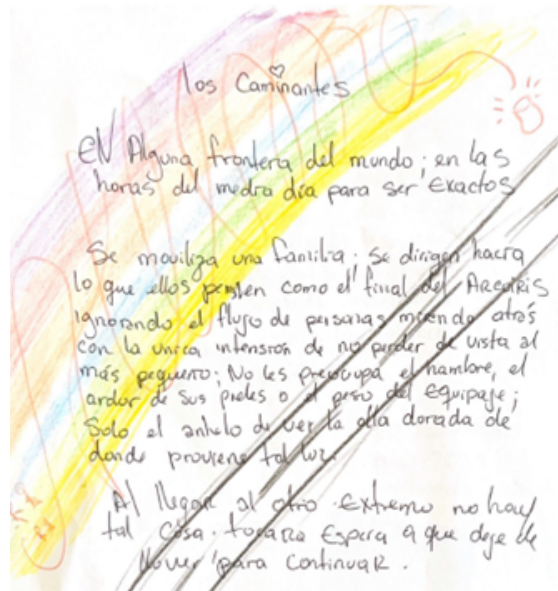 los Caminantes
EN Alguna frontera del mundo; en las
horas del medio día para ser Exactos
Se moviliza una familia; se dirigen hacia
lo que ellos perciben como el final del ArcoIRIS
ignorando el flujo de personas mirando atrás
con la unica intensión de no perder de vista al
más pequeño; No les preocupa el hambre, el
ardor de sus pieles o el peso del Equipaje;
Solo el anhelo de ver la olla dorada de
donde proviene tal luz.
Al llegar al otro Extremo no hay
tal cosa. tocara Espera a que deje de
llover para continuaR.